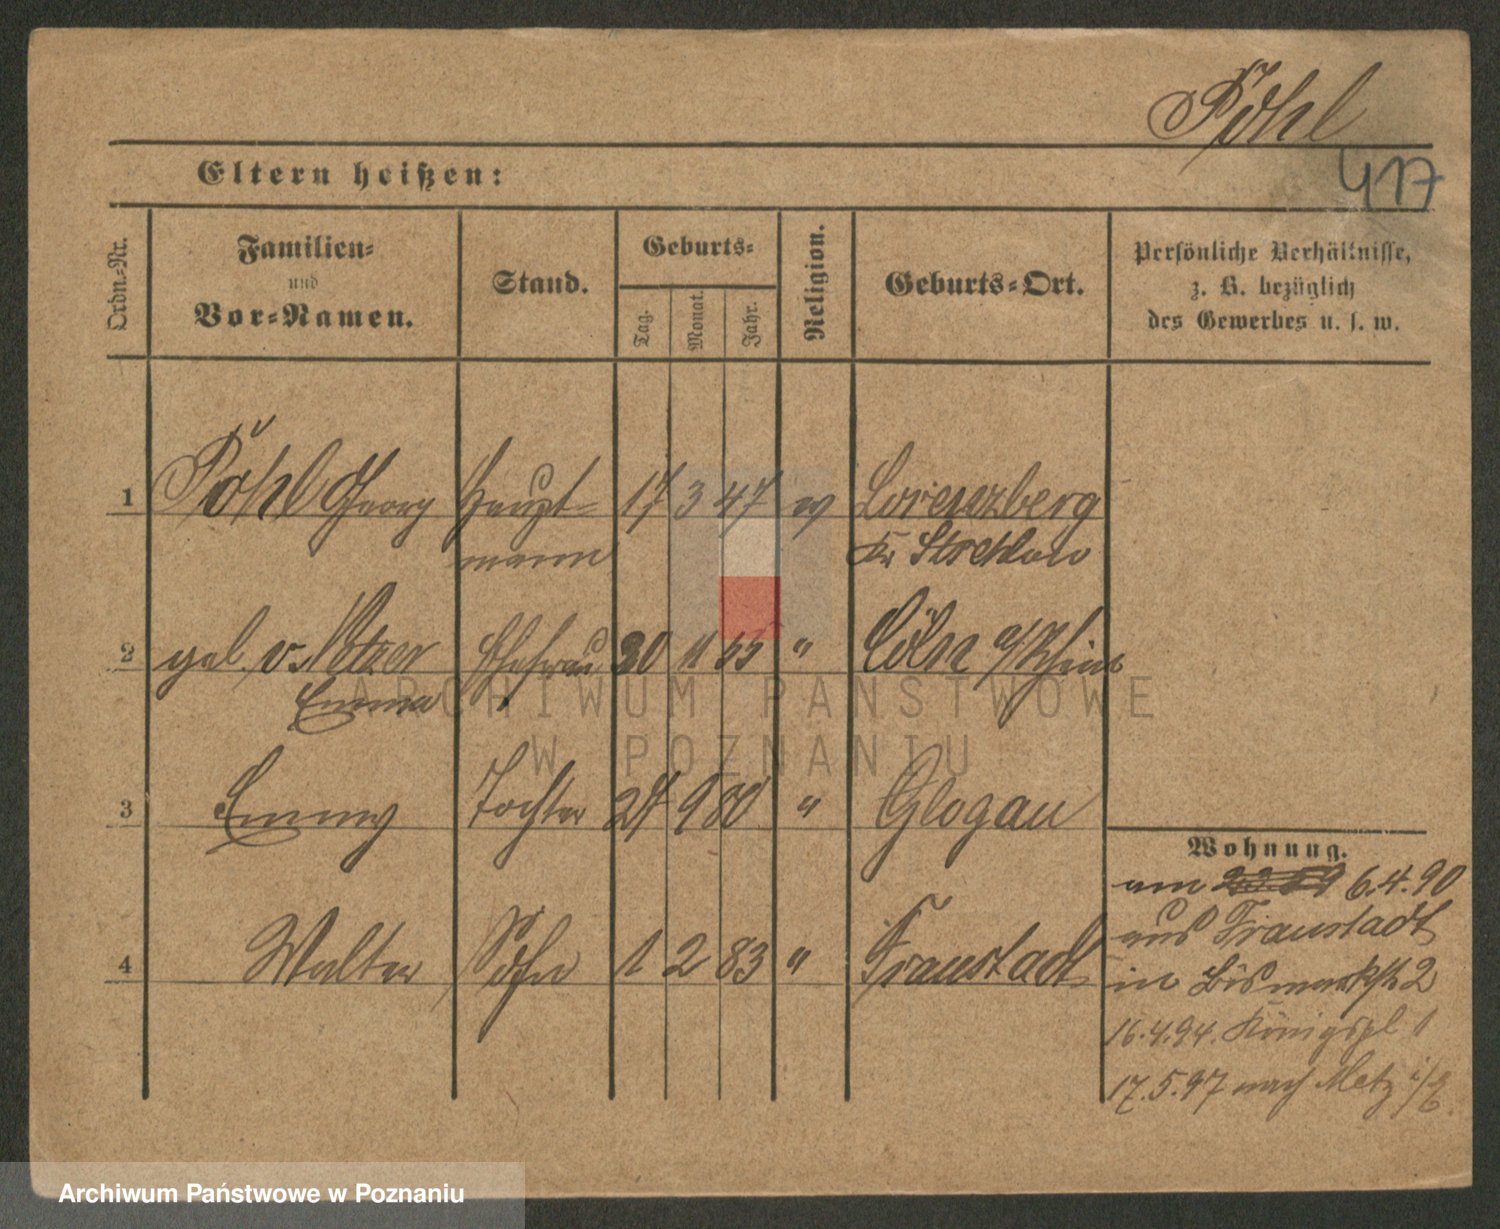 Pöhl
417
Eltern heißen:
Ordn.-Nr.
Familien-
und
Vor-Namen.
Stand.
Geburts-
Tag.
Monat.
Jahr.
Religion.
Geburts-Ort.
Persönliche Verhältnisse,
z. B. bezüglich
des Gewerbes u. s. w.
1 Pöhl Georg Haupt- 17 3 47 ev Lorenzberg
mann Kr Strehlen
2 geb. v. Emma Ehefrau 30 11 55 " Cöln a/Rhein
3 Emmy Tochter 24 9 80 " Glogau
4 Walter Sohn 1 2 83 " Fraustadt
Wohnung.
am 6.4.90
aus Fraustadt
in Bismarckstr 2
16.4.94. Königspl 1
17.5.97 nach Metz
ARCHIWUM PAŃSTWOWE
W POZNANIU
Archiwum Państwowe w Poznaniu